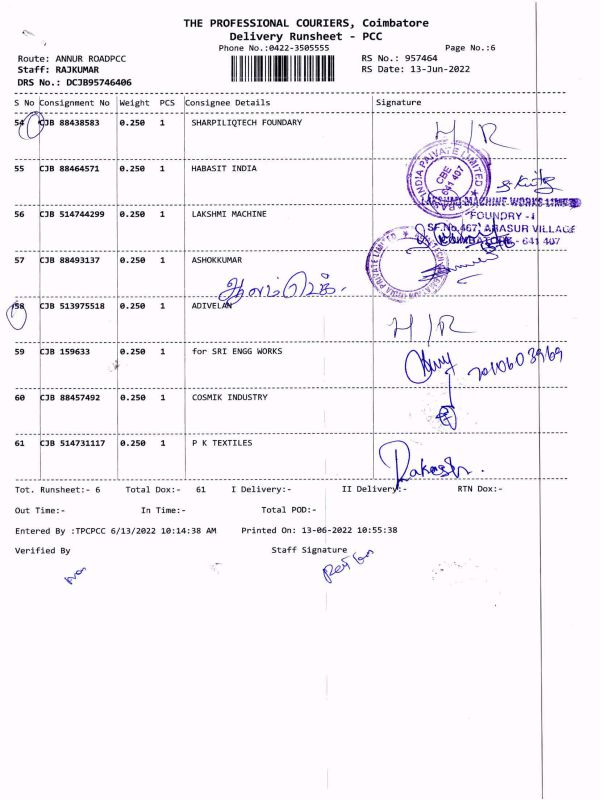 THE PROFESSIONAL COURIERS, Coimbatore
Delivery Runsheet - PCC
Phone No.:0422-3505555 Page No.:6
Route: ANNUR ROADPCC RS No.: 957464
Staff: RAJKUMAR RS Date: 13-Jun-2022
DRS No.: DCJB95746406
S No Consignment No Weight PCS Consignee Details Signature
54 CJB 88438583 0.250 1 SHARPILIQTECH FOUNDARY H/R
55 CJB 88464571 0.250 1 HABASIT INDIA
INDIA PRIVATE LIMITED
CBE
641 407
LAKSHMI MACHINE WORKS LIMITED
56 CJB 514744299 0.250 1 LAKSHMI MACHINE FOUNDRY - I
SF.No.467 ARASUR VILLAGE
COIMBATORE - 641 407
57 CJB 88493137 0.250 1 ASHOKKUMAR
58 CJB 513975518 0.250 1 ADIVELAN H/R
59 CJB 159633 0.250 1 for SRI ENGG WORKS
60 CJB 88457492 0.250 1 COSMIK INDUSTRY
61 CJB 514731117 0.250 1 P K TEXTILES Rakesh.
Tot. Runsheet:- 6 Total Dox:- 61 I Delivery:- II Delivery:- RTN Dox:-
Out Time:- In Time:- Total POD:-
Entered By :TPCPCC 6/13/2022 10:14:38 AM Printed On: 13-06-2022 10:55:38
Verified By Staff Signature